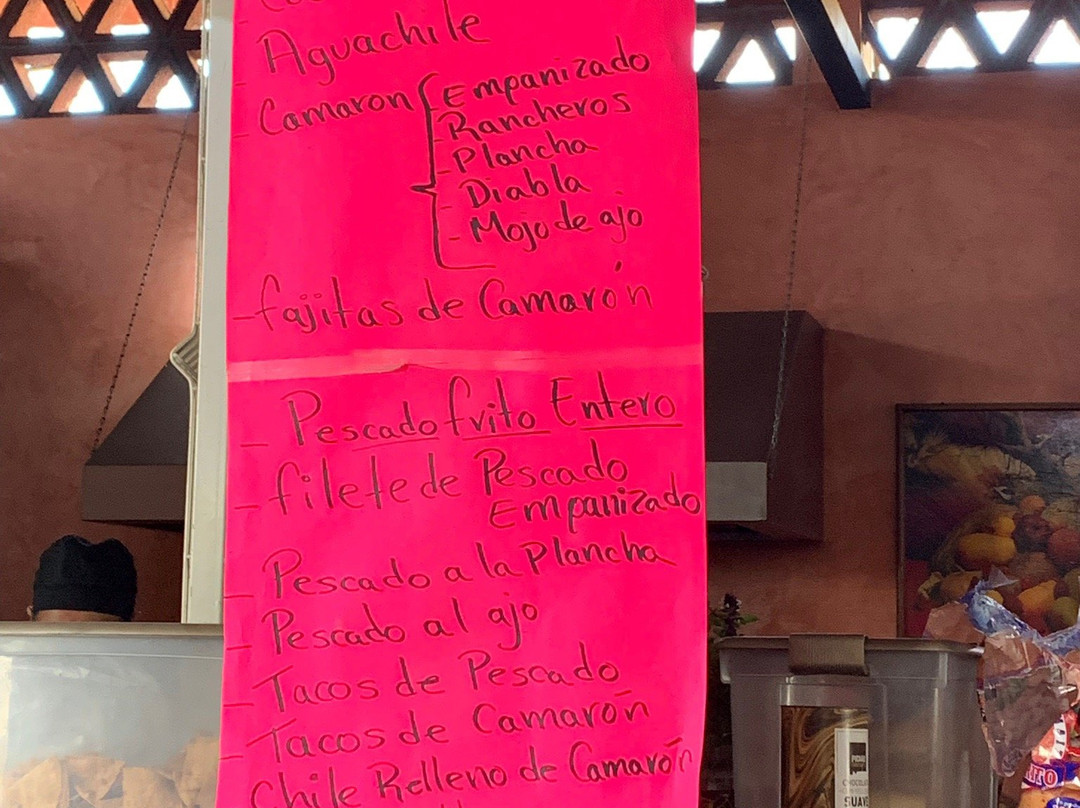 - Aguachile
- Camaron { Empanizado
- Rancheros
- Plancha
- Diabla
- Mojo de ajo
- fajitas de Camarón
- Pescado frito Entero
- filete de Pescado
Empanizado
- Pescado a la Plancha
- Pescado al ajo
- Tacos de Pescado
- Tacos de Camarón
Chile Relleno de Camarón
SUAVE